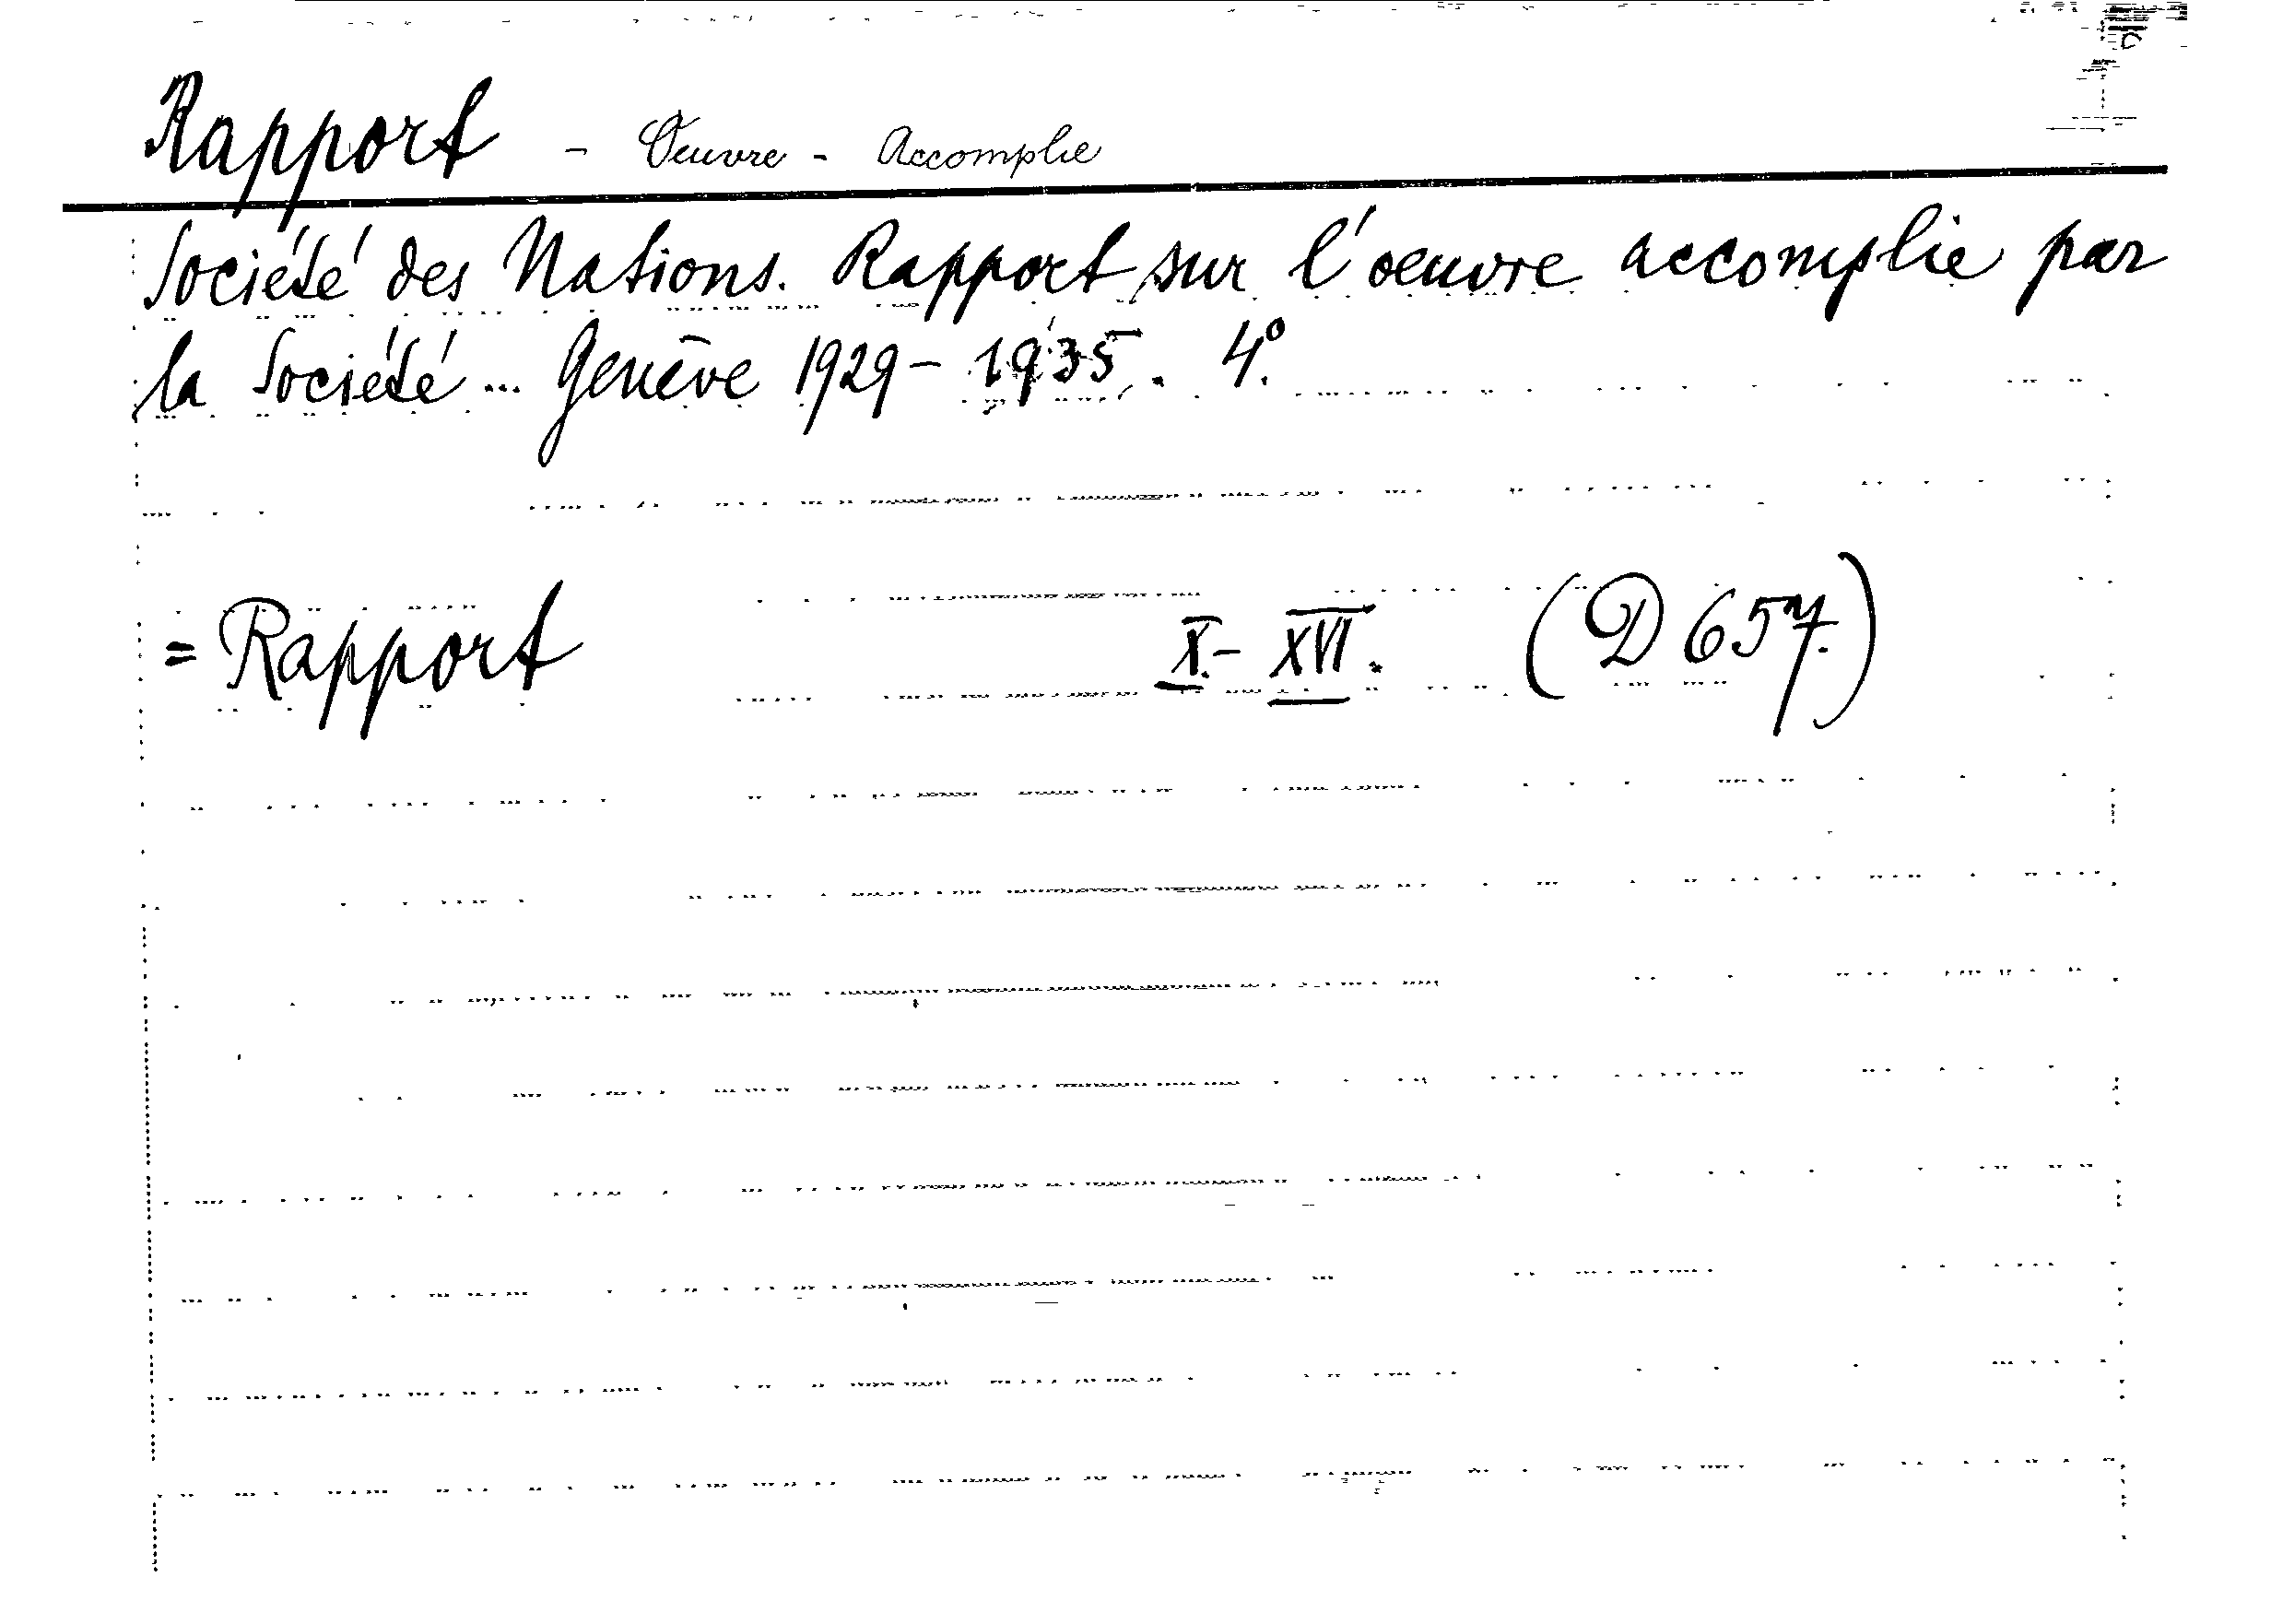 Rapport - Oeuvre - Accomplie
Société des Nations. Rapport sur l'oeuvre accomplie par
la Société ... Genève 1929 - 1935. 4°.
= Rapport X. - XVI. (D 657.)